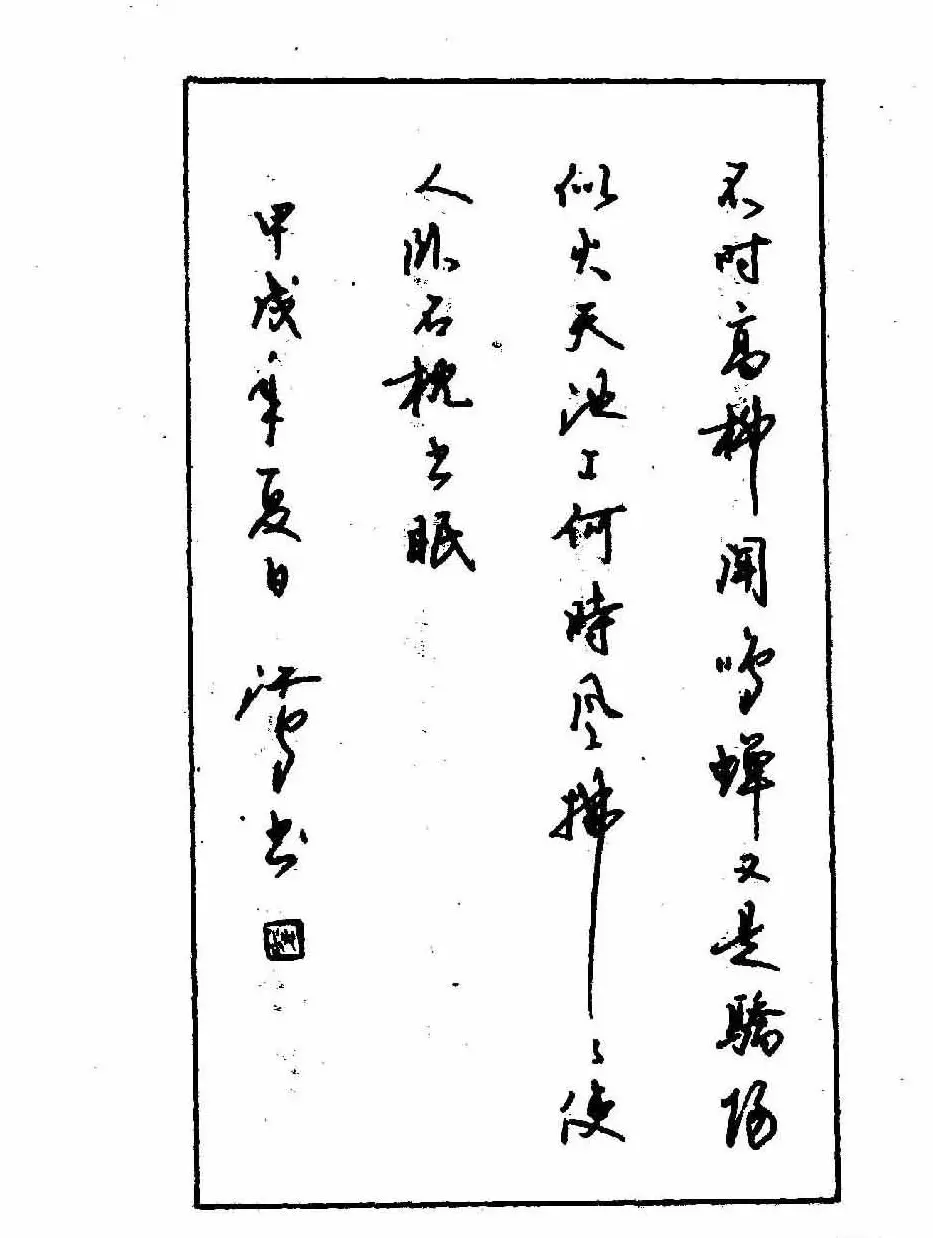 不时高柳闻鸣蝉又是骄阳
似火天池上何時风拂〻使
人卧石枕书眠
甲戌年夏日 书